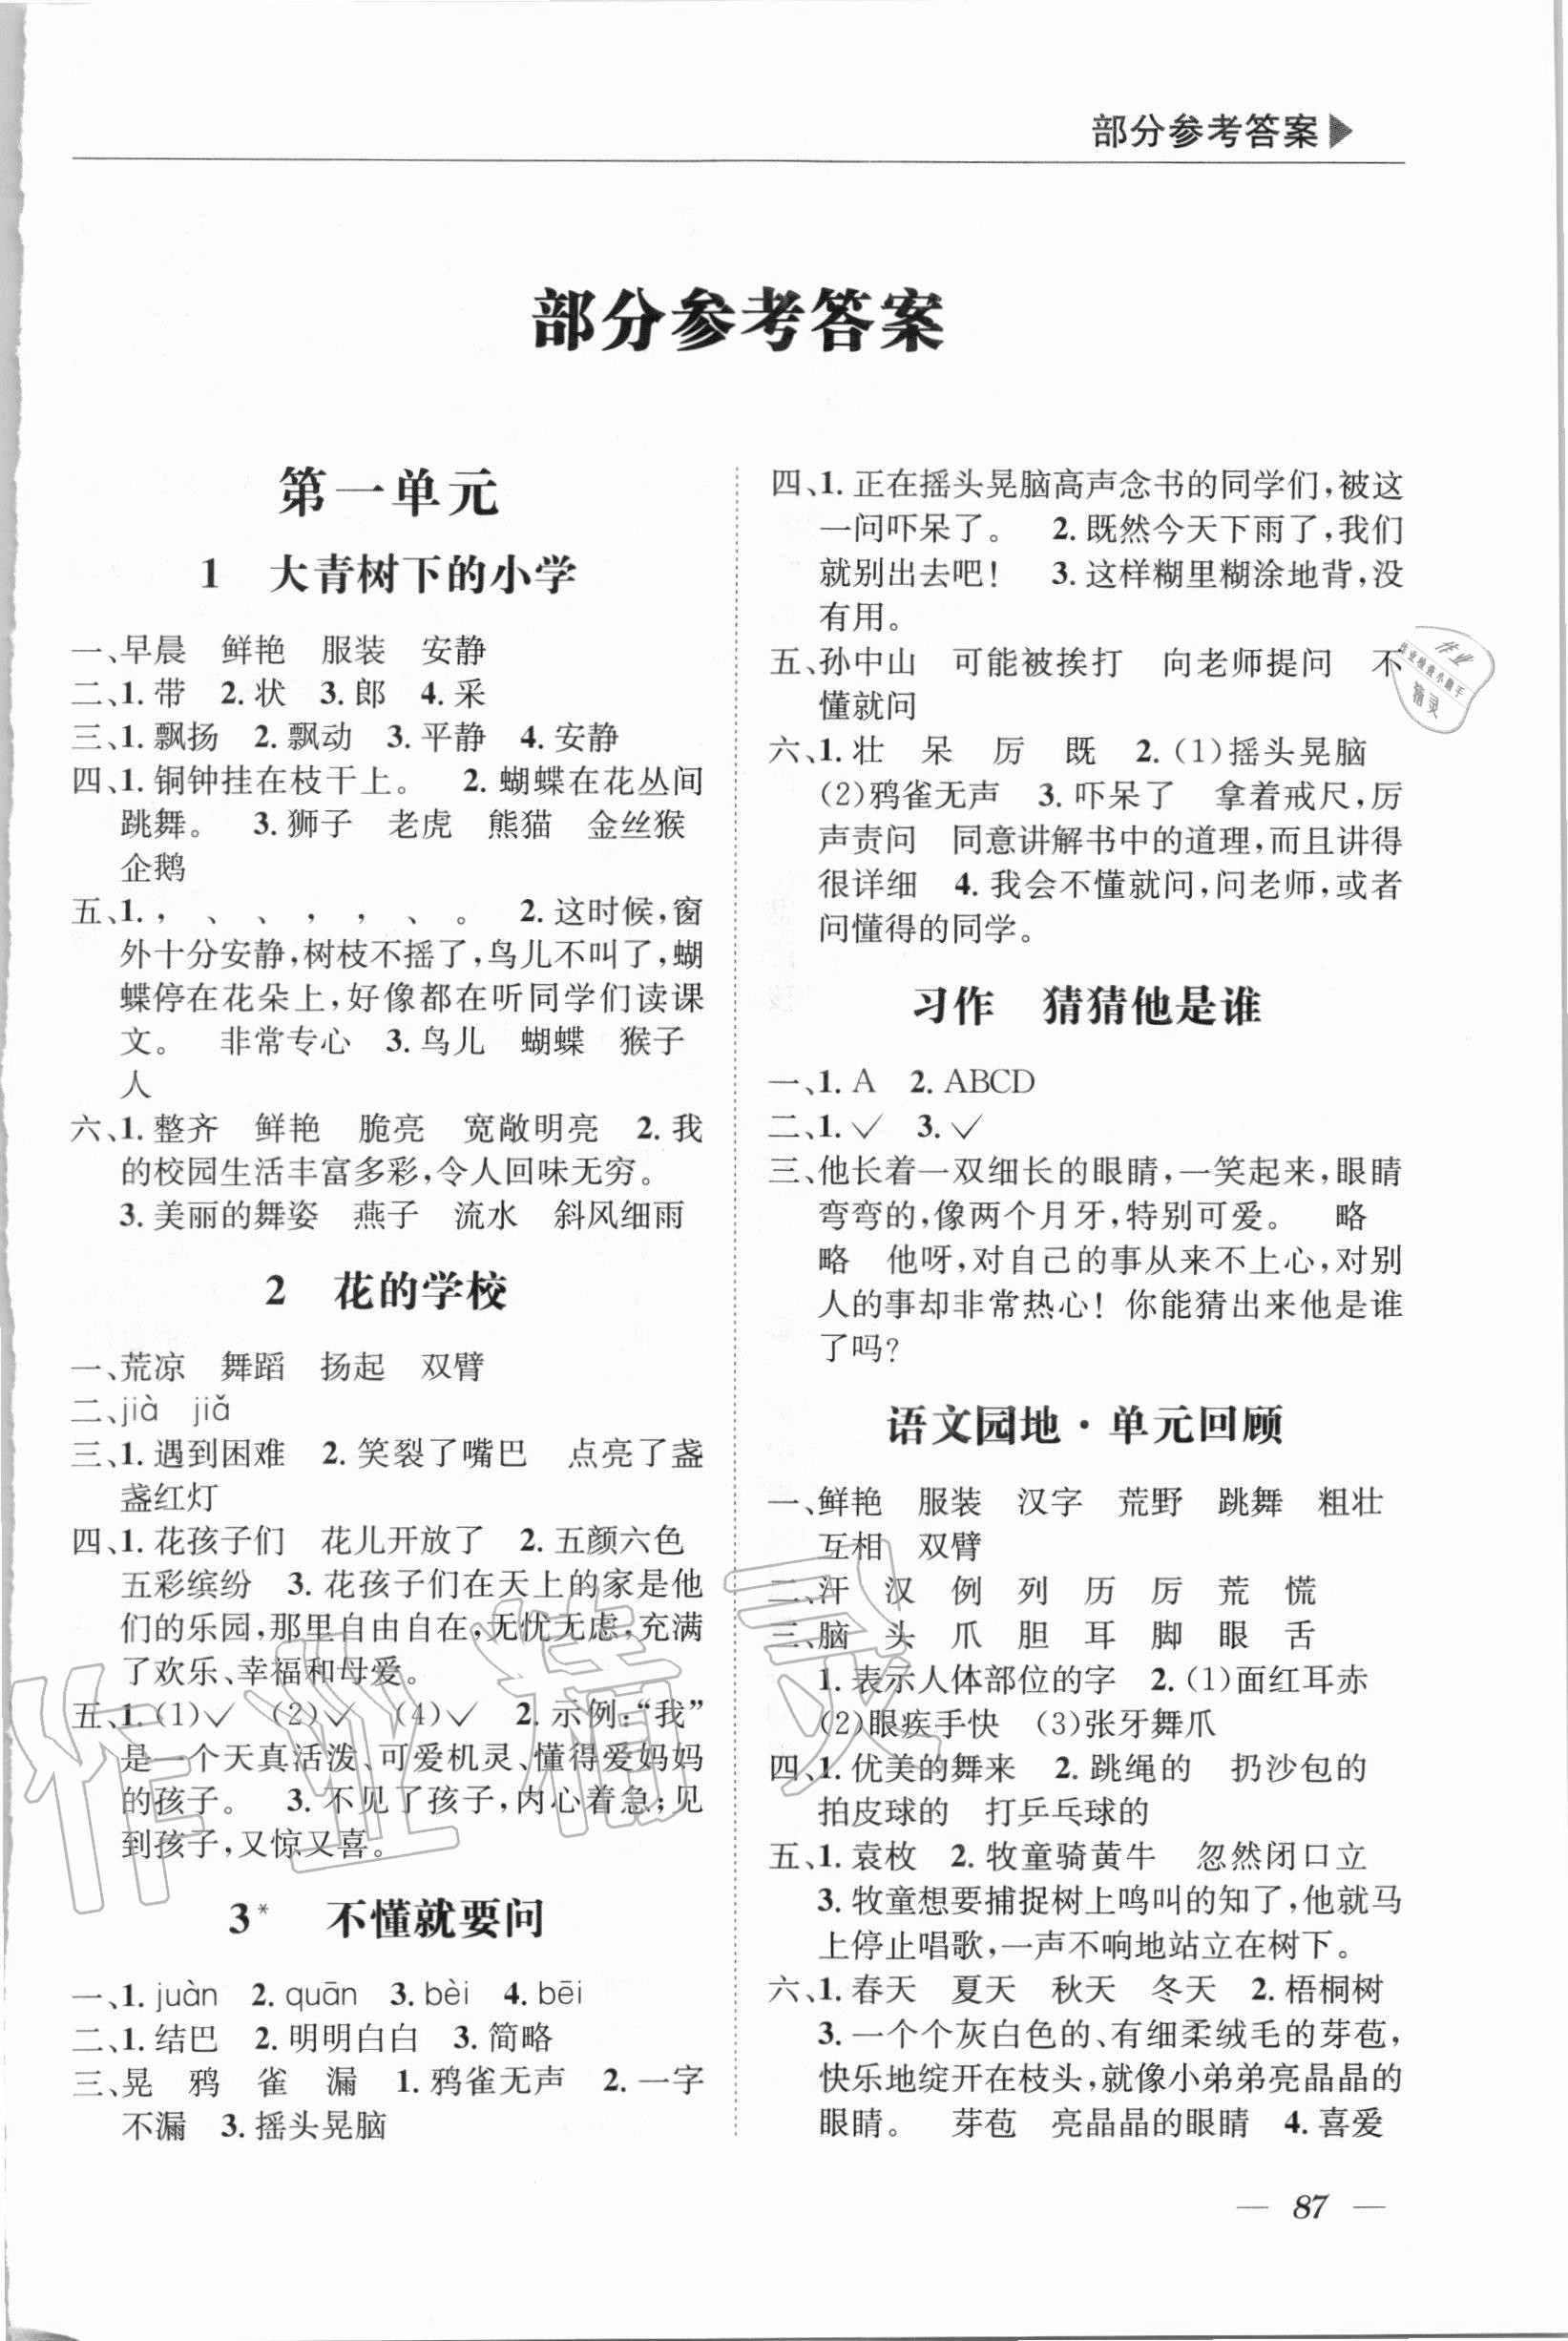 部分参考答案
部分参考答案
第一单元
1 大青树下的小学
一、早晨 鲜艳 服装 安静
二、1. 带 2. 状 3. 郎 4. 采
三、1. 飘扬 2. 飘动 3. 平静 4. 安静
四、1. 铜钟挂在枝干上。 2. 蝴蝶在花丛间
跳舞。 3. 狮子 老虎 熊猫 金丝猴
企鹅
五、1. , 、 、 , , 、 。 2. 这时候,窗
外十分安静,树枝不摇了,鸟儿不叫了,蝴
蝶停在花朵上,好像都在听同学们读课
文。 非常专心 3. 鸟儿 蝴蝶 猴子
人
六、1. 整齐 鲜艳 脆亮 宽敞明亮 2. 我
的校园生活丰富多彩,令人回味无穷。
3. 美丽的舞姿 燕子 流水 斜风细雨
2 花的学校
一、荒凉 舞蹈 扬起 双臂
二、jià jiǎ
三、1. 遇到困难 2. 笑裂了嘴巴 点亮了盏
盏红灯
四、1. 花孩子们 花儿开放了 2. 五颜六色
五彩缤纷 3. 花孩子们在天上的家是他
们的乐园,那里自由自在,无忧无虑,充满
了欢乐、幸福和母爱。
五、1. (1)✓ (2)✓ (4)✓ 2. 示例:“我”
是一个天真活泼、可爱机灵、懂得爱妈妈
的孩子。 3. 不见了孩子,内心着急;见
到孩子,又惊又喜。
3* 不懂就要问
一、1. juàn 2. quān 3. bèi 4. bēi
二、1. 结巴 2. 明明白白 3. 简略
三、晃 鸦 雀 漏 1. 鸦雀无声 2. 一字
不漏 3. 摇头晃脑
四、1. 正在摇头晃脑高声念书的同学们,被这
一问吓呆了。 2. 既然今天下雨了,我们
就别出去吧! 3. 这样糊里糊涂地背,没
有用。
五、孙中山 可能被挨打 向老师提问 不
懂就问
六、1. 壮 呆 厉 既 2. (1)摇头晃脑
(2)鸦雀无声 3. 吓呆了 拿着戒尺,厉
声责问 同意讲解书中的道理,而且讲得
很详细 4. 我会不懂就问,问老师,或者
问懂得的同学。
习作 猜猜他是谁
一、1. A 2. ABCD
二、1. ✓ 3. ✓
三、他长着一双细长的眼睛,一笑起来,眼睛
弯弯的,像两个月牙,特别可爱。 略
略 他呀,对自己的事从来不上心,对别
人的事却非常热心! 你能猜出来他是谁
了吗?
语文园地·单元回顾
一、鲜艳 服装 汉字 荒野 跳舞 粗壮
互相 双臂
二、汗 汉 例 列 历 厉 荒 慌
三、脑 头 爪 胆 耳 脚 眼 舌
1. 表示人体部位的字 2. (1)面红耳赤
(2)眼疾手快 (3)张牙舞爪
四、1. 优美的舞来 2. 跳绳的 扔沙包的
拍皮球的 打乒乓球的
五、1. 袁枚 2. 牧童骑黄牛 忽然闭口立
3. 牧童想要捕捉树上鸣叫的知了,他就马
上停止唱歌,一声不响地站立在树下。
六、1. 春天 夏天 秋天 冬天 2. 梧桐树
3. 一个个灰白色的、有细柔绒毛的芽苞,
快乐地绽开在枝头,就像小弟弟亮晶晶的
眼睛。 芽苞 亮晶晶的眼睛 4. 喜爱
— 87 —
作业精灵
作业
作业检查小助手
精灵